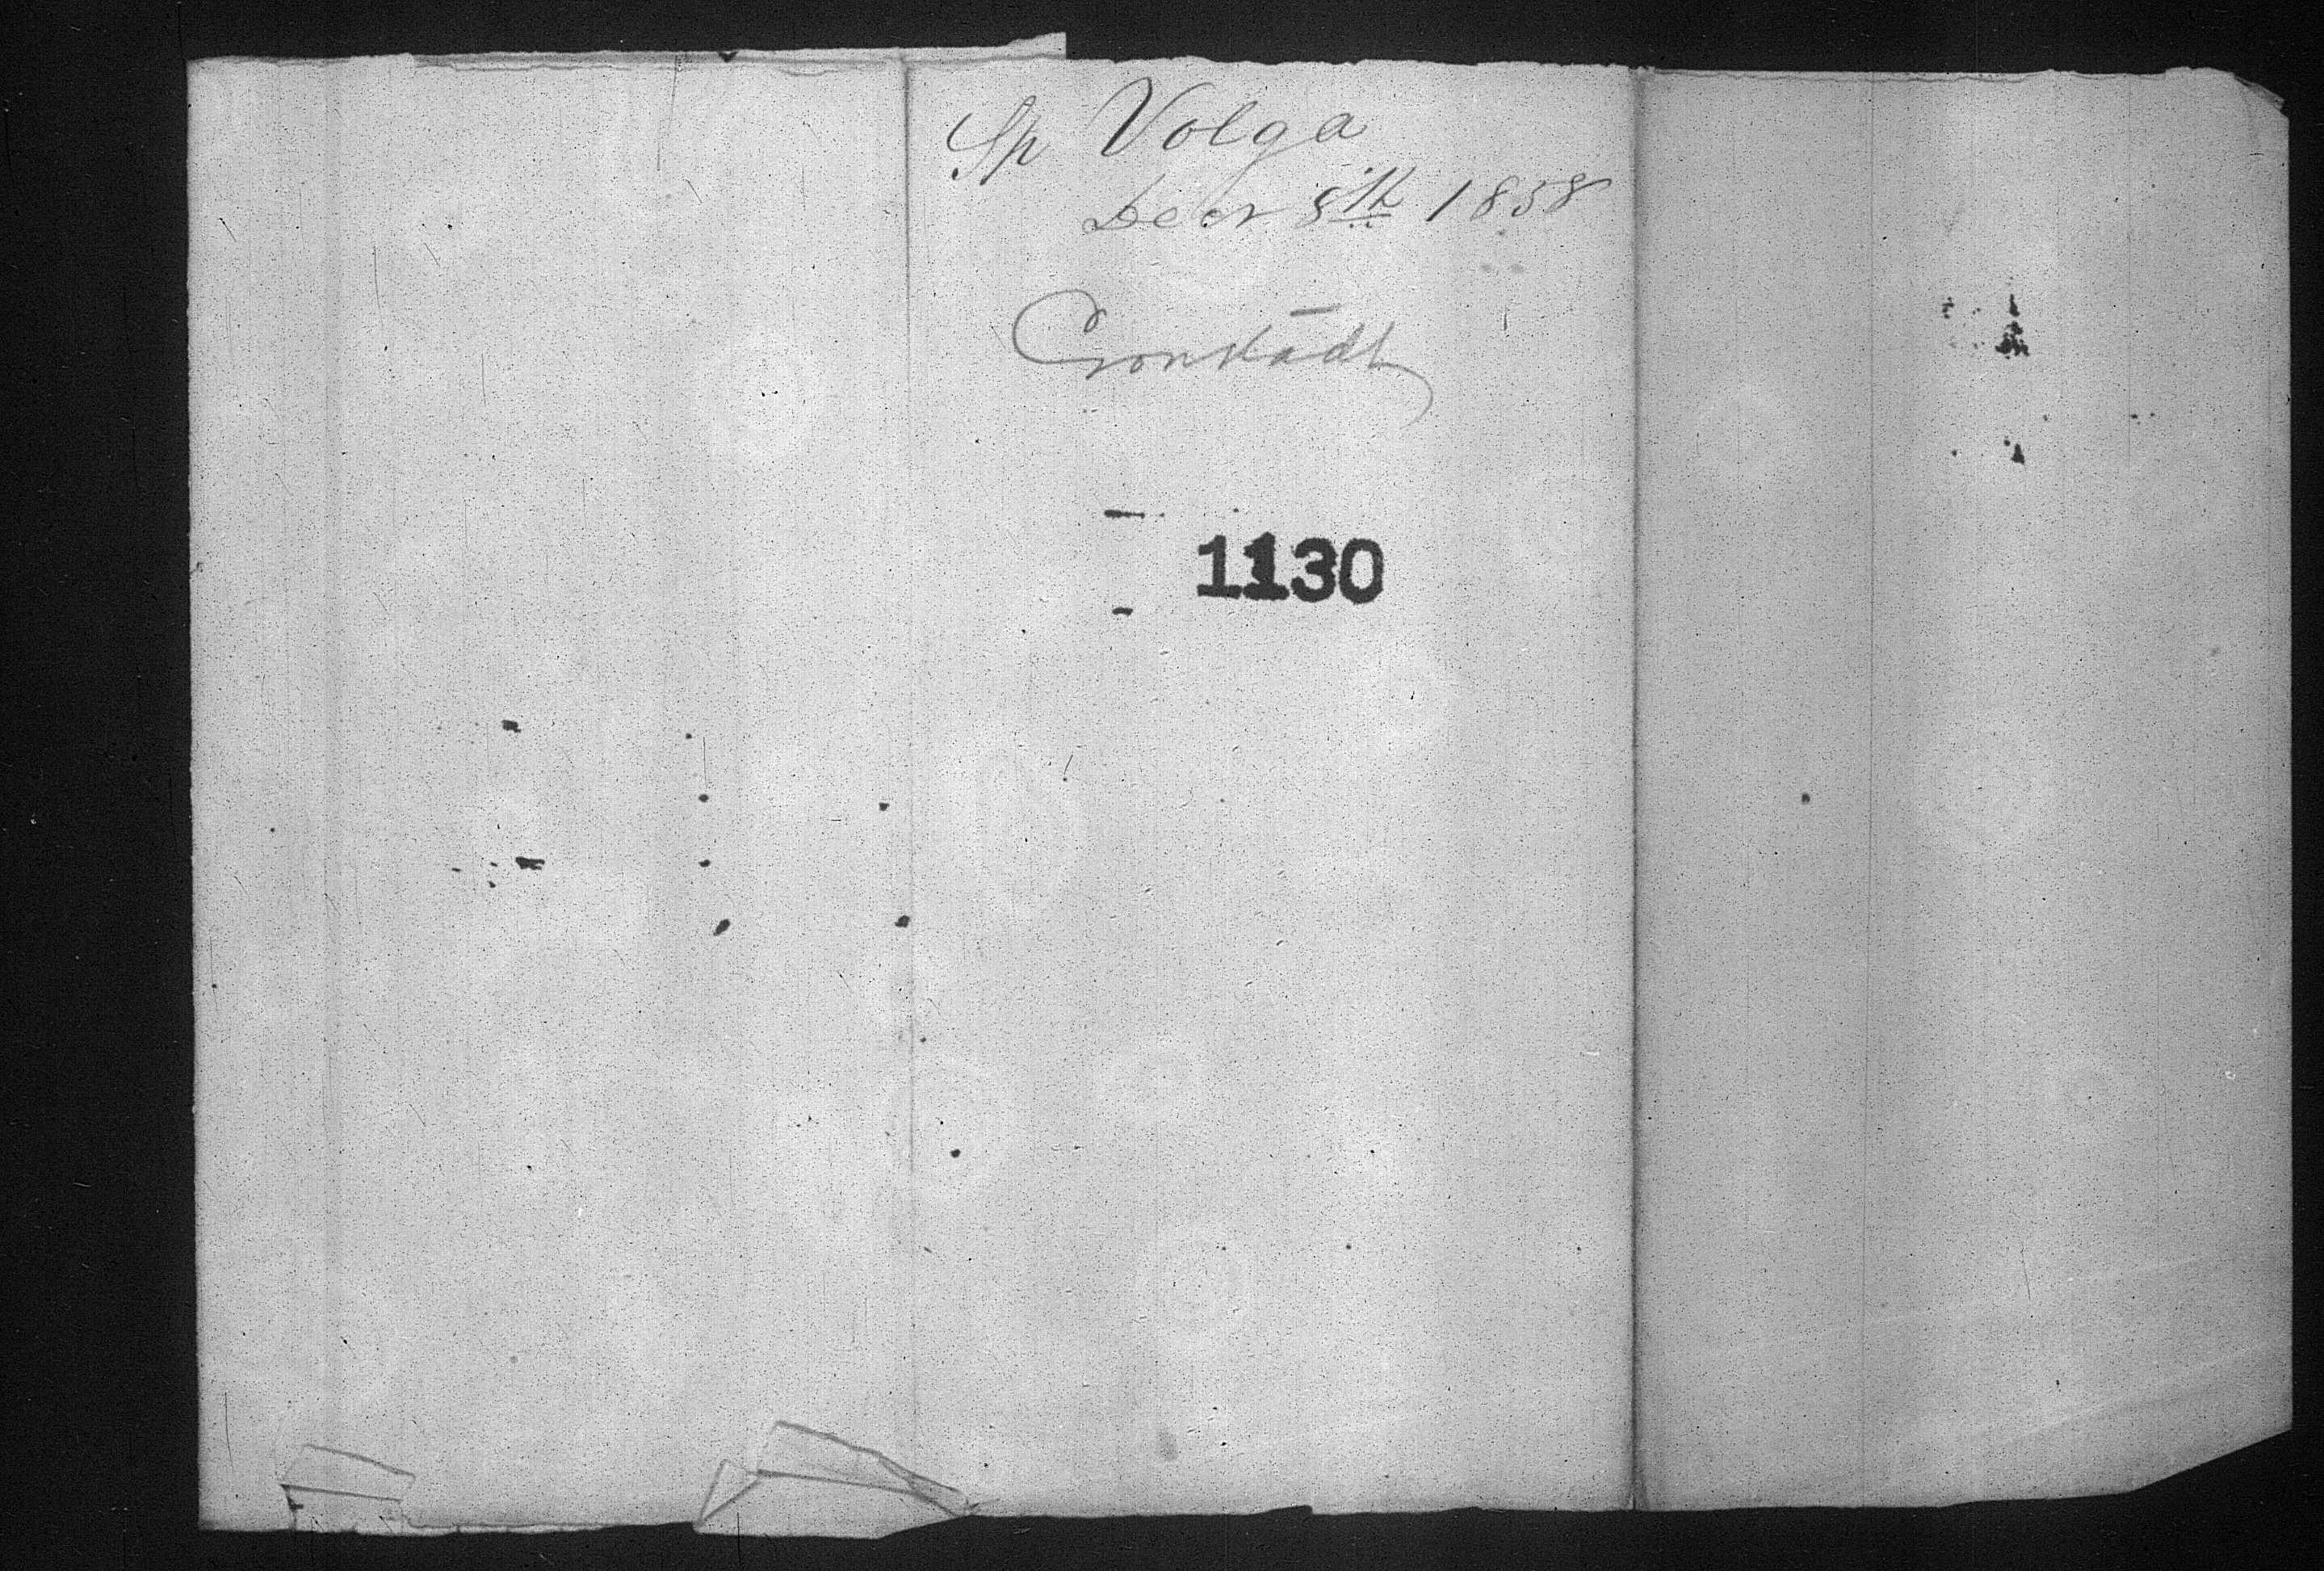 Sp Volga
Decr 8th 1858
Cronstadt
1130